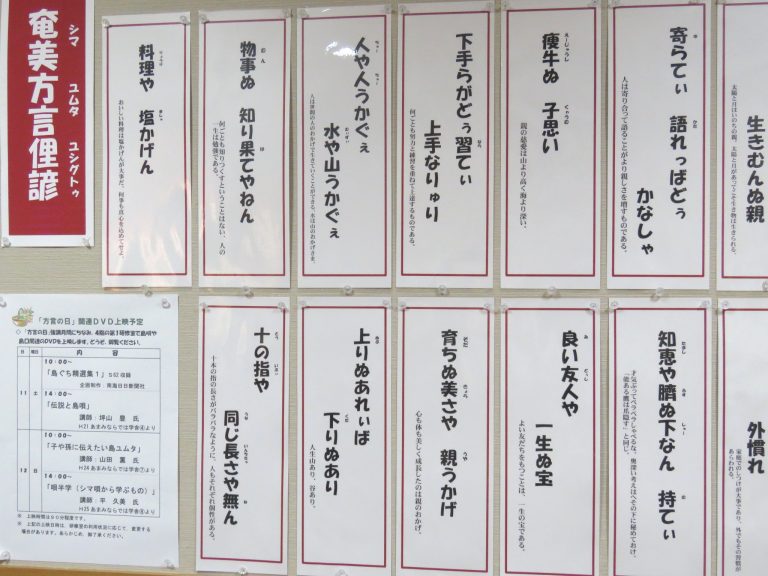 シマ ユムタ ユシグトゥ
奄美方言俚諺
生きむんぬ親
太陽と月はいのちの親、太陽と月があってこそ生き物は生きられる。
寄らてぃ 語れっばどぅ
かなしゃ
人は寄り合って語ることがより親しさを増すものである。
痩牛ぬ 子思い
親の慈愛は山より高く海より深い。
下手らがどぅ習てぃ
上手なりゅり
何ごとも努力と練習を重ねて上達するものである。
人や人うかぐぇ
水や山うかぐぇ
人は世間の人のおかげで生きていくことができる、水は山のおかげさま。
物事ぬ 知り果てやねん
何ごとも知りつくすということはない、人の
一生は勉強である。
料理や 塩かげん
おいしい料理は塩かげんが大事だ、何事も真心を込めてせよ。
外慣れ
家庭でのしつけが大事であり、外でもその習慣が
あらわれる。
知恵や臍ぬ下なん 持てぃ
才気ぶってペラペラしゃべるな、奥深い考えはへその下に秘めておけ、
「能ある鷹は爪隠す」と同じ。
良い友人や
一生ぬ宝
よい友だちをもつことは、一生の宝である。
育ちぬ美さや 親うかげ
心も体も美しく成長したのは親のおかげ。
上りぬあれぃば
下りぬあり
人生山あり、谷あり。
十の指や
同じ長さや無ん
十本の指の長さがバラバラなように、人もそれぞれ個性がある。
「方言の日」関連DVD上映予定
◇「方言の日」強調月間にちなみ、4階の第3研修室で島唄や
島口関連のDVDを上映します。どうぞ、御覧ください。
日 曜日 内 容
11 土
10:00~
「島ぐち精選集1」S62収録
企画制作:南海日日新聞社
14:00~
「伝説と島唄」
講師:坪山 豊 氏
H21あまみならでは学舎④より
12 日
10:00~
「子や孫に伝えたい島ユムタ」
講師:山田 薫 氏
H24あまみならでは学舎⑦より
14:00~
「唄半学(シマ唄から学ぶもの)」
講師:平 久美 氏
H25あまみならでは学舎④より
※ 上映時間は90分程度です。
※ 上記の上映日時は、研修室の利用状況に応じて、変更する
場合があります。あらかじめ、御了承ください。